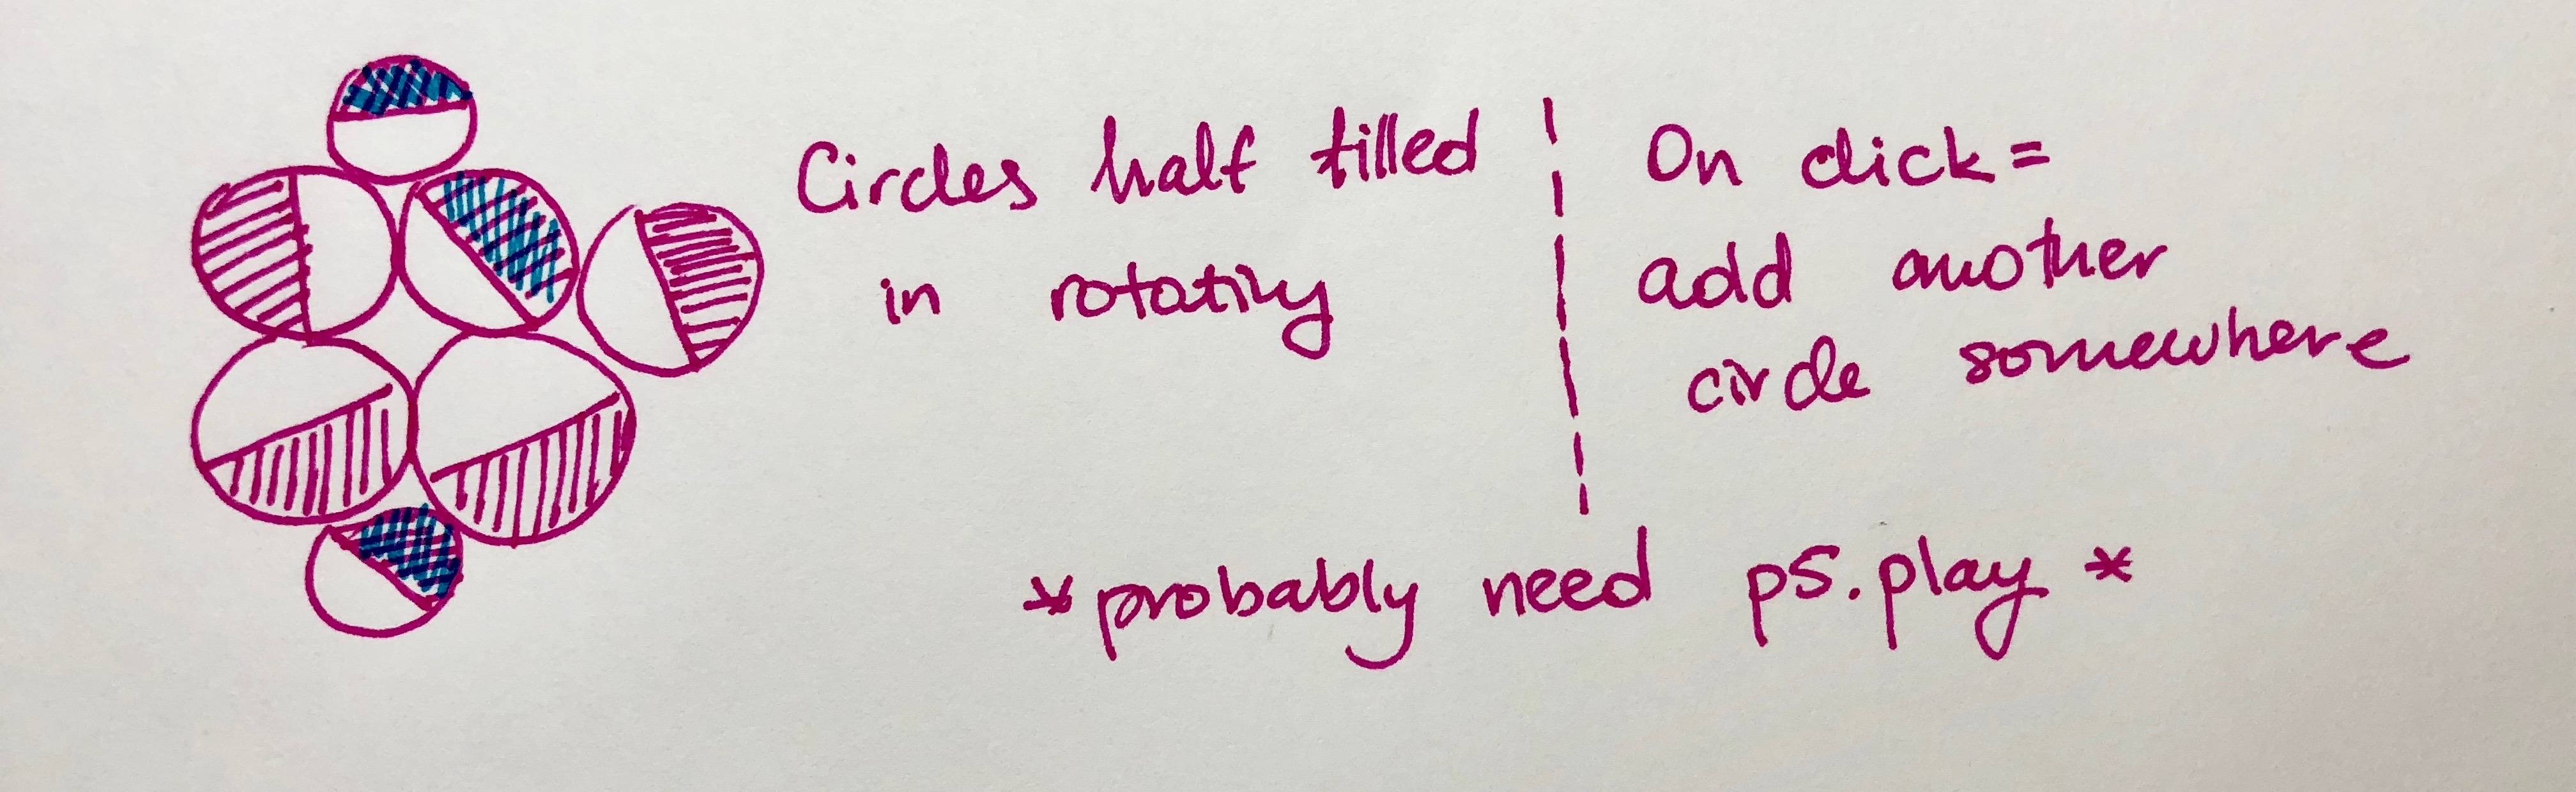 Circles half filled
in rotating
On click =
add another
circle somewhere
*probably need p5.play *